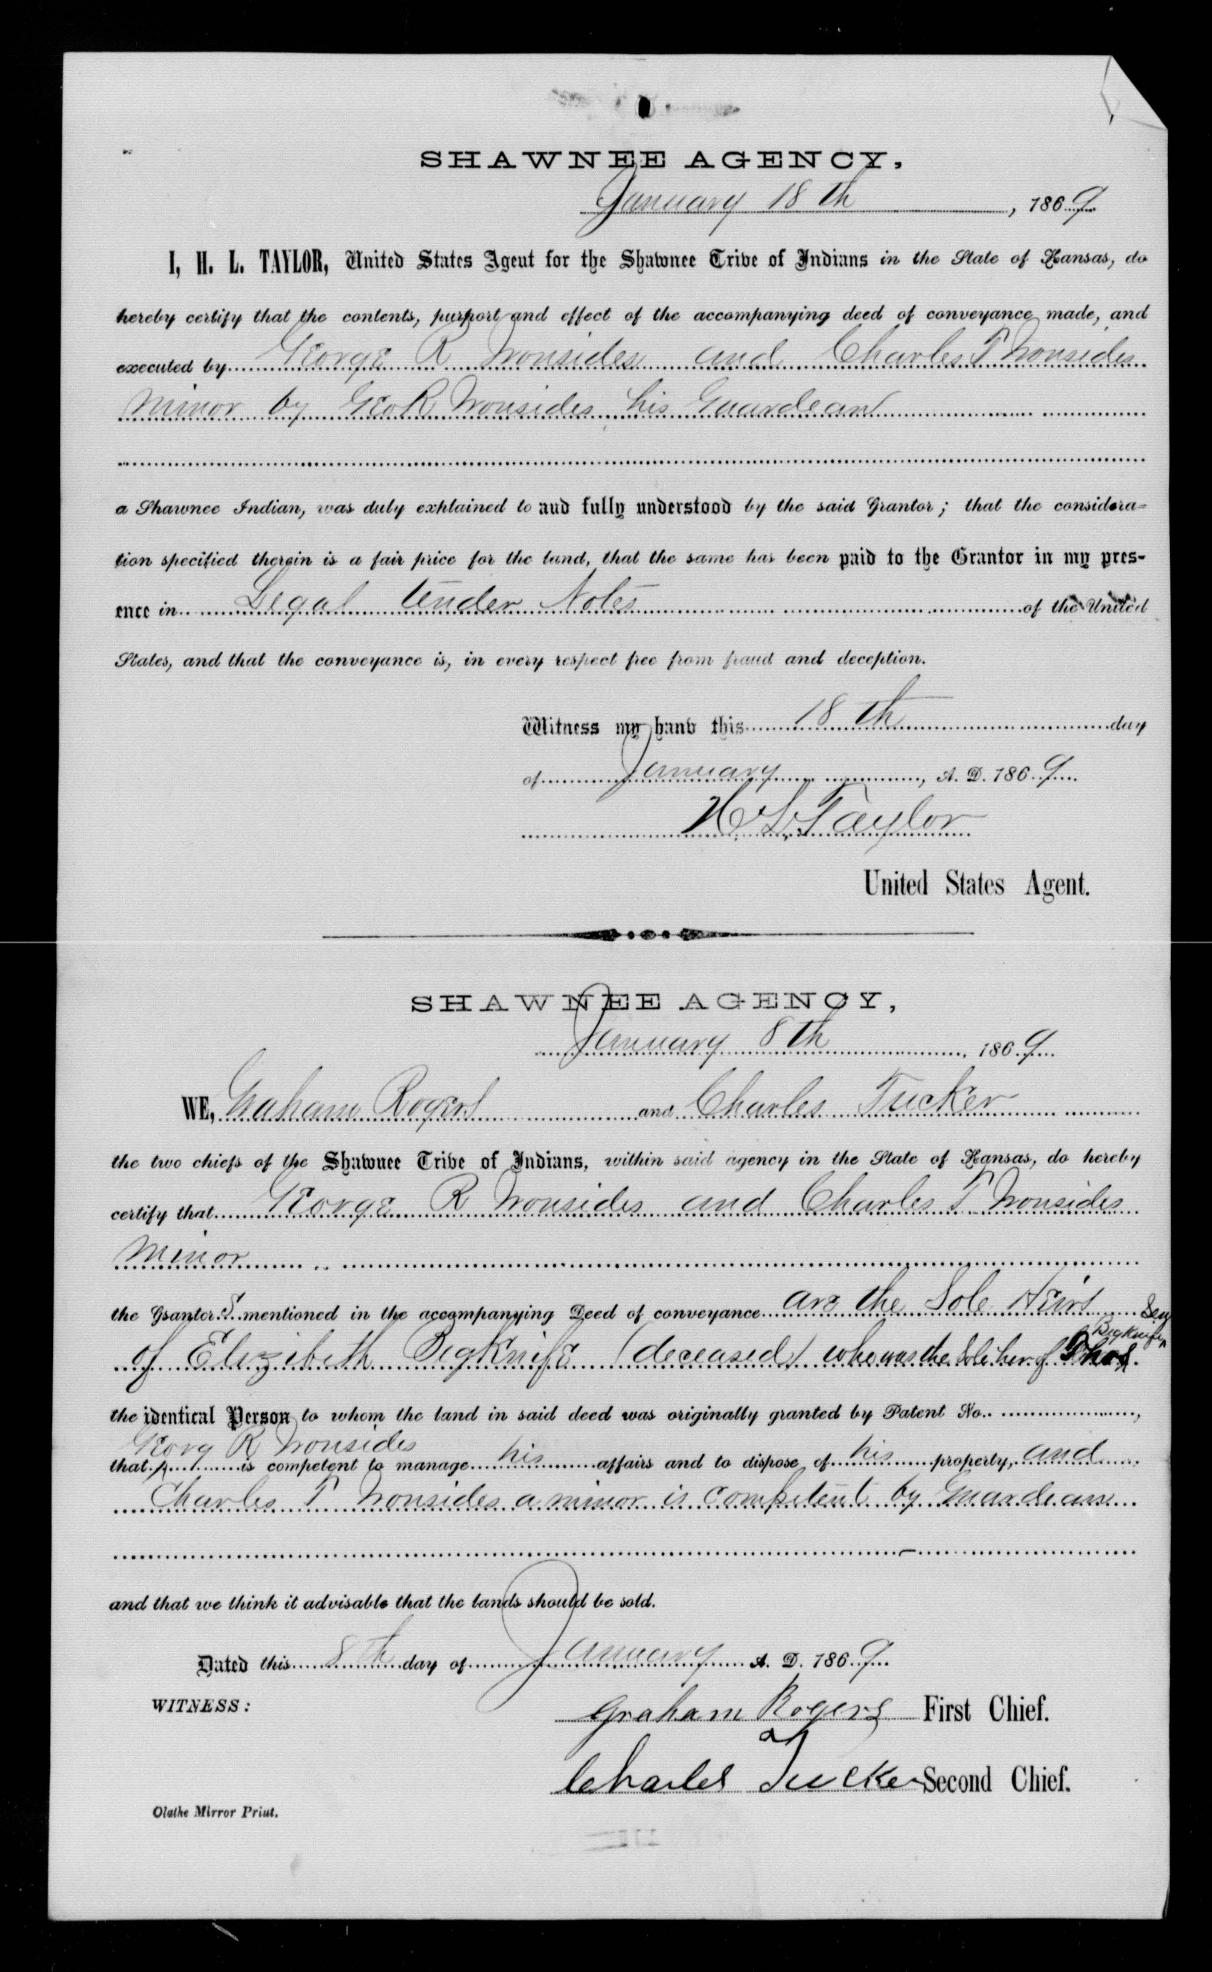 SHAWNEE AGENCY,
January 18th, 1869
I, H. L. TAYLOR, United States Agent for the Shawnee Tribe of Indians in the State of Kansas, do
hereby certify that the contents, purport and effect of the accompanying deed of conveyance made, and
executed by George R Ironsides and Charles T Ironsides
minor by Geo R Ironsides his Guardean
a Shawnee Indian, was duly explained to and fully understood by the said Grantor; that the considera-
tion specified therein is a fair price for the land, that the same has been paid to the Grantor in my pres-
ence in Legal tender Notes of the United
States, and that the conveyance is, in every respect free from fraud and deception.
Witness my hand this 18th day
of January, A. D. 1869
H. L. Taylor
United States Agent.
SHAWNEE AGENCY,
January 8th, 1869
WE, Graham Rogers and Charles Tucker
the two chiefs of the Shawnee Tribe of Indians, within said agency in the State of Kansas, do hereby
certify that George R Ironsides and Charles T Ironsides
Minor
the Grantors mentioned in the accompanying Deed of conveyance are the Sole Heirs
Bigknife
of Elizibeth Bigknife (deceased) who was the Sole heir of Thos
the identical Person to whom the land in said deed was originally granted by Patent No.,
Georg R Ironsides
that is competent to manage his affairs and to dispose of his property, and
Charles T Ironsides a minor is competent by Guardean
and that we think it advisable that the lands should be sold.
Dated this 8th day of January A. D. 1869
WITNESS:
Graham Rogers First Chief.
Charles Tucker Second Chief.
Olathe Mirror Print.